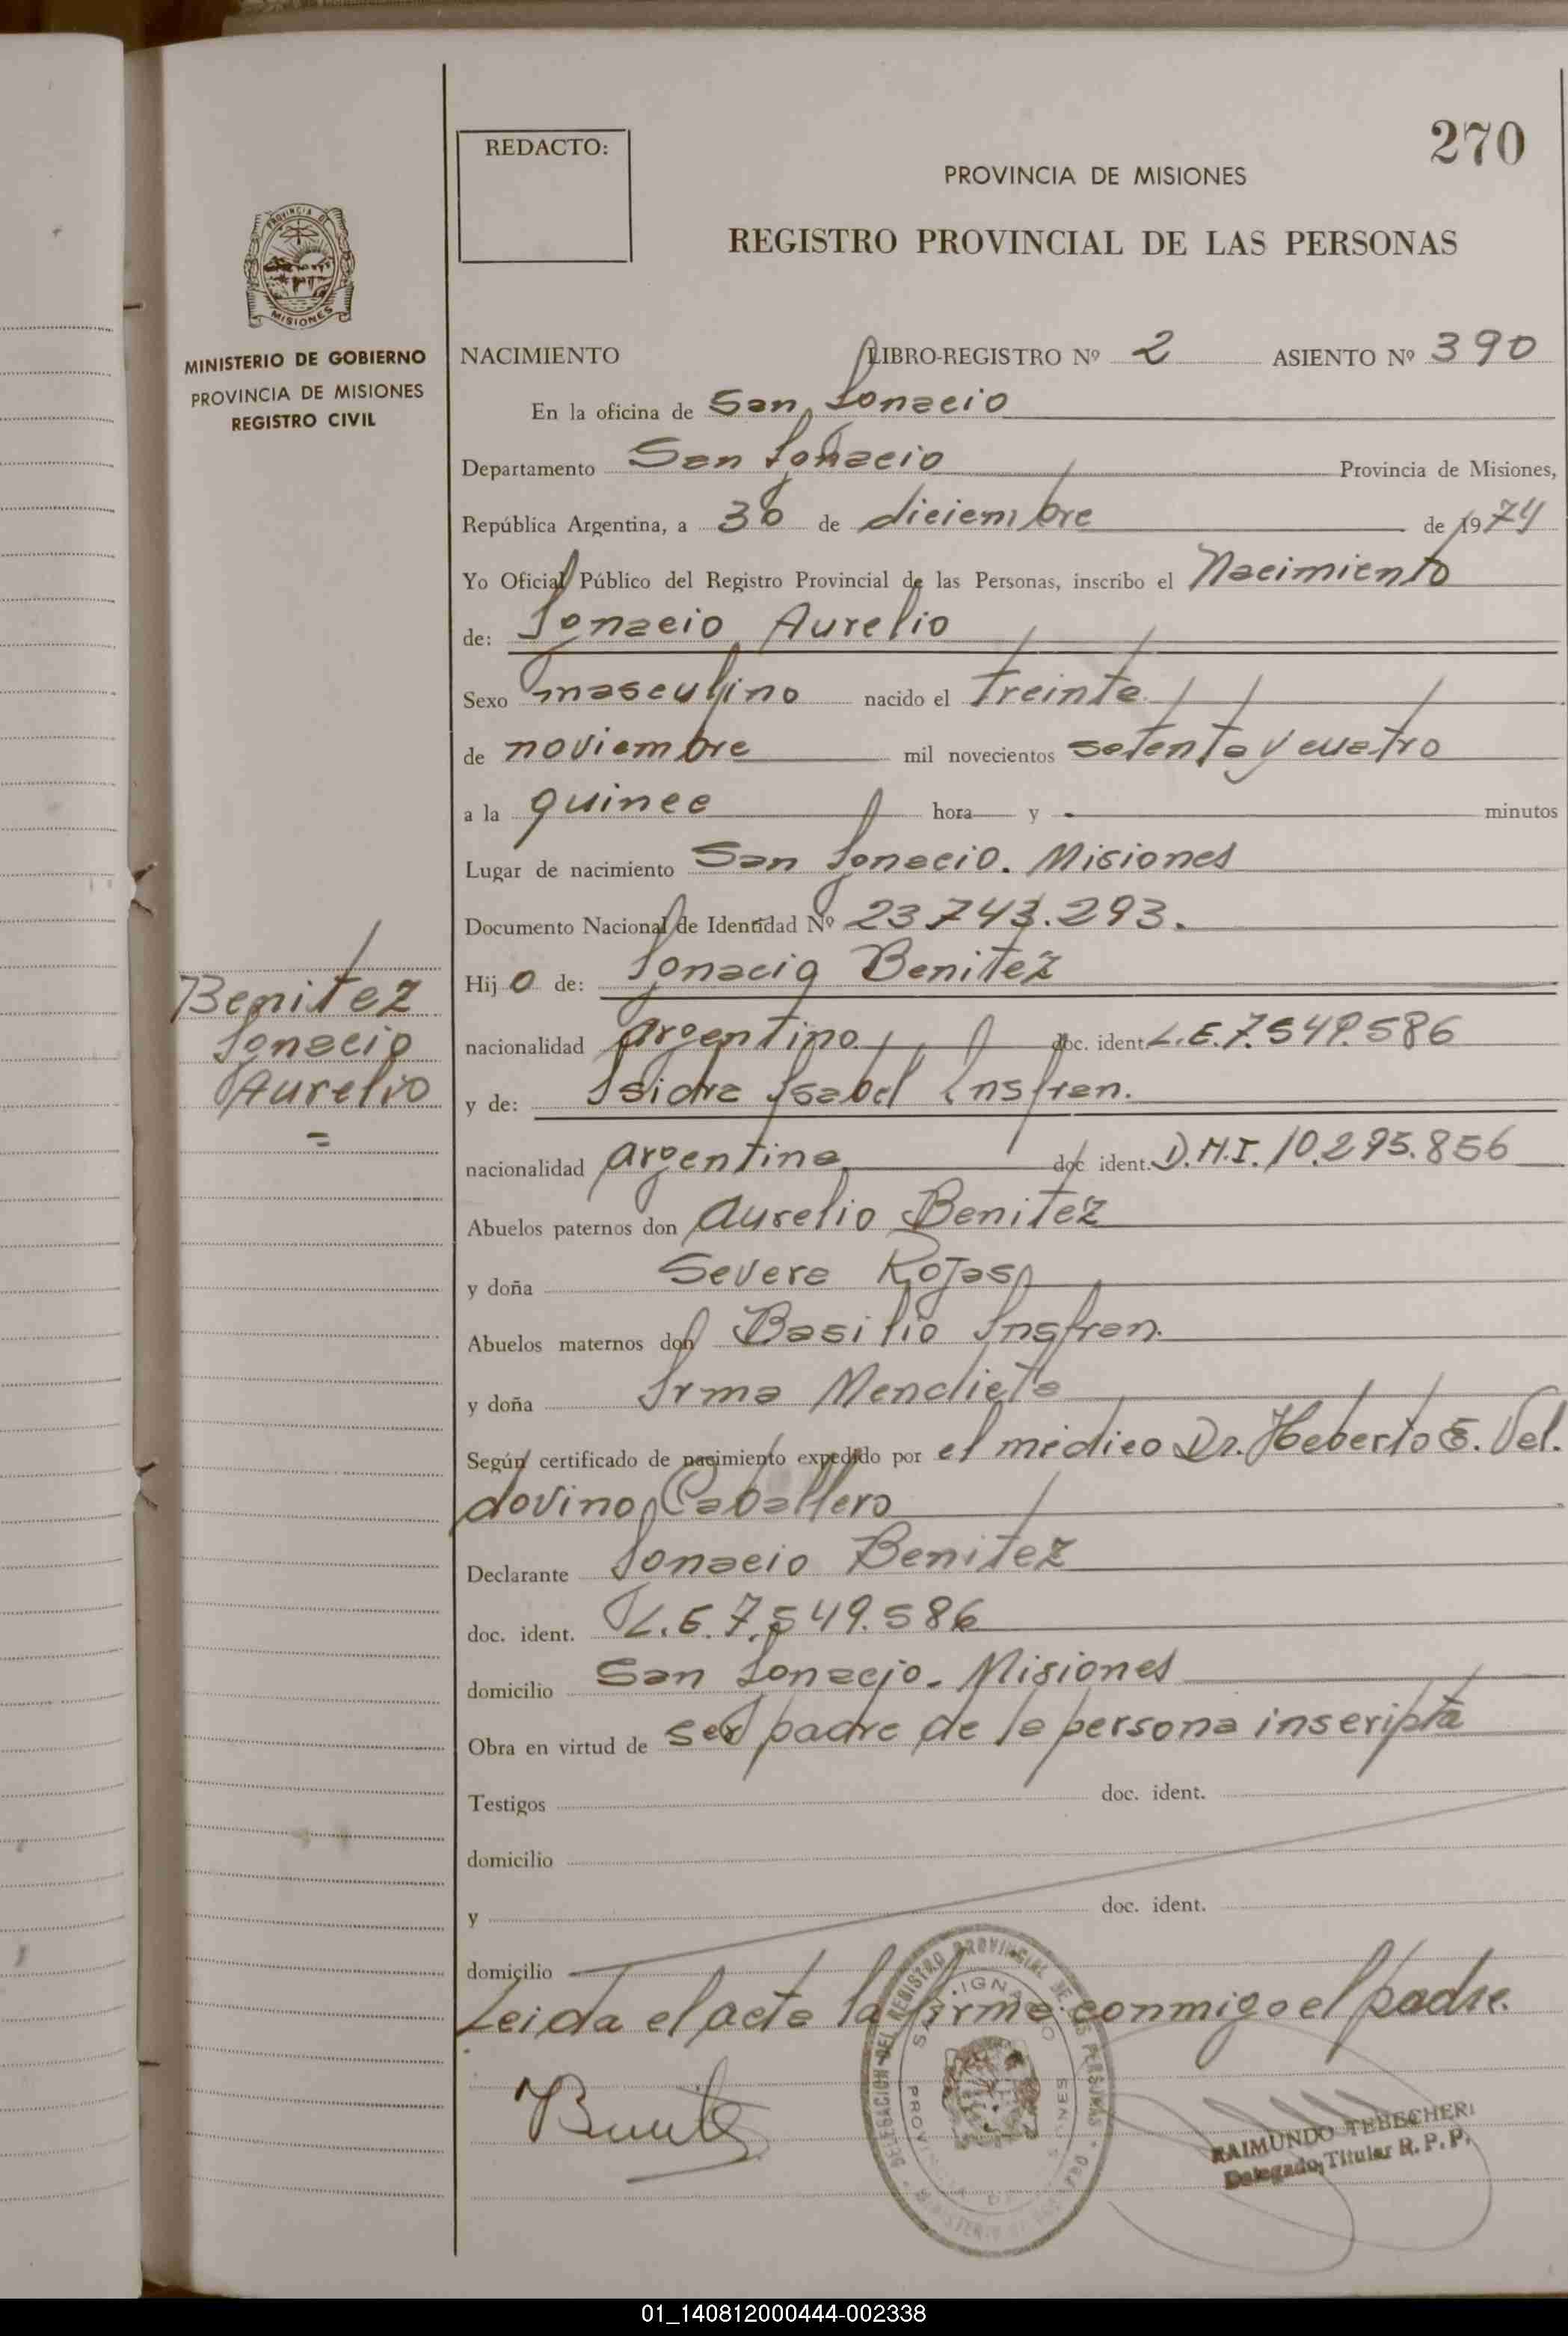 270
REDACTO:
PROVINCIA DE MISIONES
REGISTRO PROVINCIAL DE LAS PERSONAS
PROVINCIA DE
MISIONES
MINISTERIO DE GOBIERNO
PROVINCIA DE MISIONES
REGISTRO CIVIL
NACIMIENTO LIBRO-REGISTRO Nº 2 ASIENTO Nº 390
En la oficina de San Ignacio
Departamento San Ignacio Provincia de Misiones,
República Argentina, a 30 de diciembre de 1974
Yo Oficial Público del Registro Provincial de las Personas, inscribo el Nacimiento
de: Ignacio Aurelio
Sexo masculino nacido el treinta
de noviembre mil novecientos setenta y cuatro
a la quince hora y - minutos
Lugar de nacimiento San Ignacio. Misiones
Documento Nacional de Identidad Nº 23.743.293.
Hijo de: Ignacio Benitez
Benitez
Ignacio
Aurelio
=
nacionalidad argentino doc. ident. L.E.7.549.586
y de: Isidra Isabel Insfran.
nacionalidad argentina doc ident. D.N.I. 10.295.856
Abuelos paternos don Aurelio Benitez
y doña Severa Rojas
Abuelos maternos don Basilio Insfran.
y doña Irma Mendieta
Según certificado de nacimiento expedido por el médico Dr. Heberto E. Vel.
dovino Caballero
Declarante Ignacio Benitez
doc. ident. L.E. 7.549.586
domicilio San Ignacio. Misiones
Obra en virtud de ser padre de la persona inscripta
Testigos doc. ident.
domicilio
y doc. ident.
domicilio
Leida el acta la firma conmigo el padre.
DELEGACION DEL REGISTRO PROVINCIAL DE LAS PERSONAS
IGNACIO
RAIMUNDO TEBECHERI
Delegado Titular R. P. P.
01_140812000444-002338